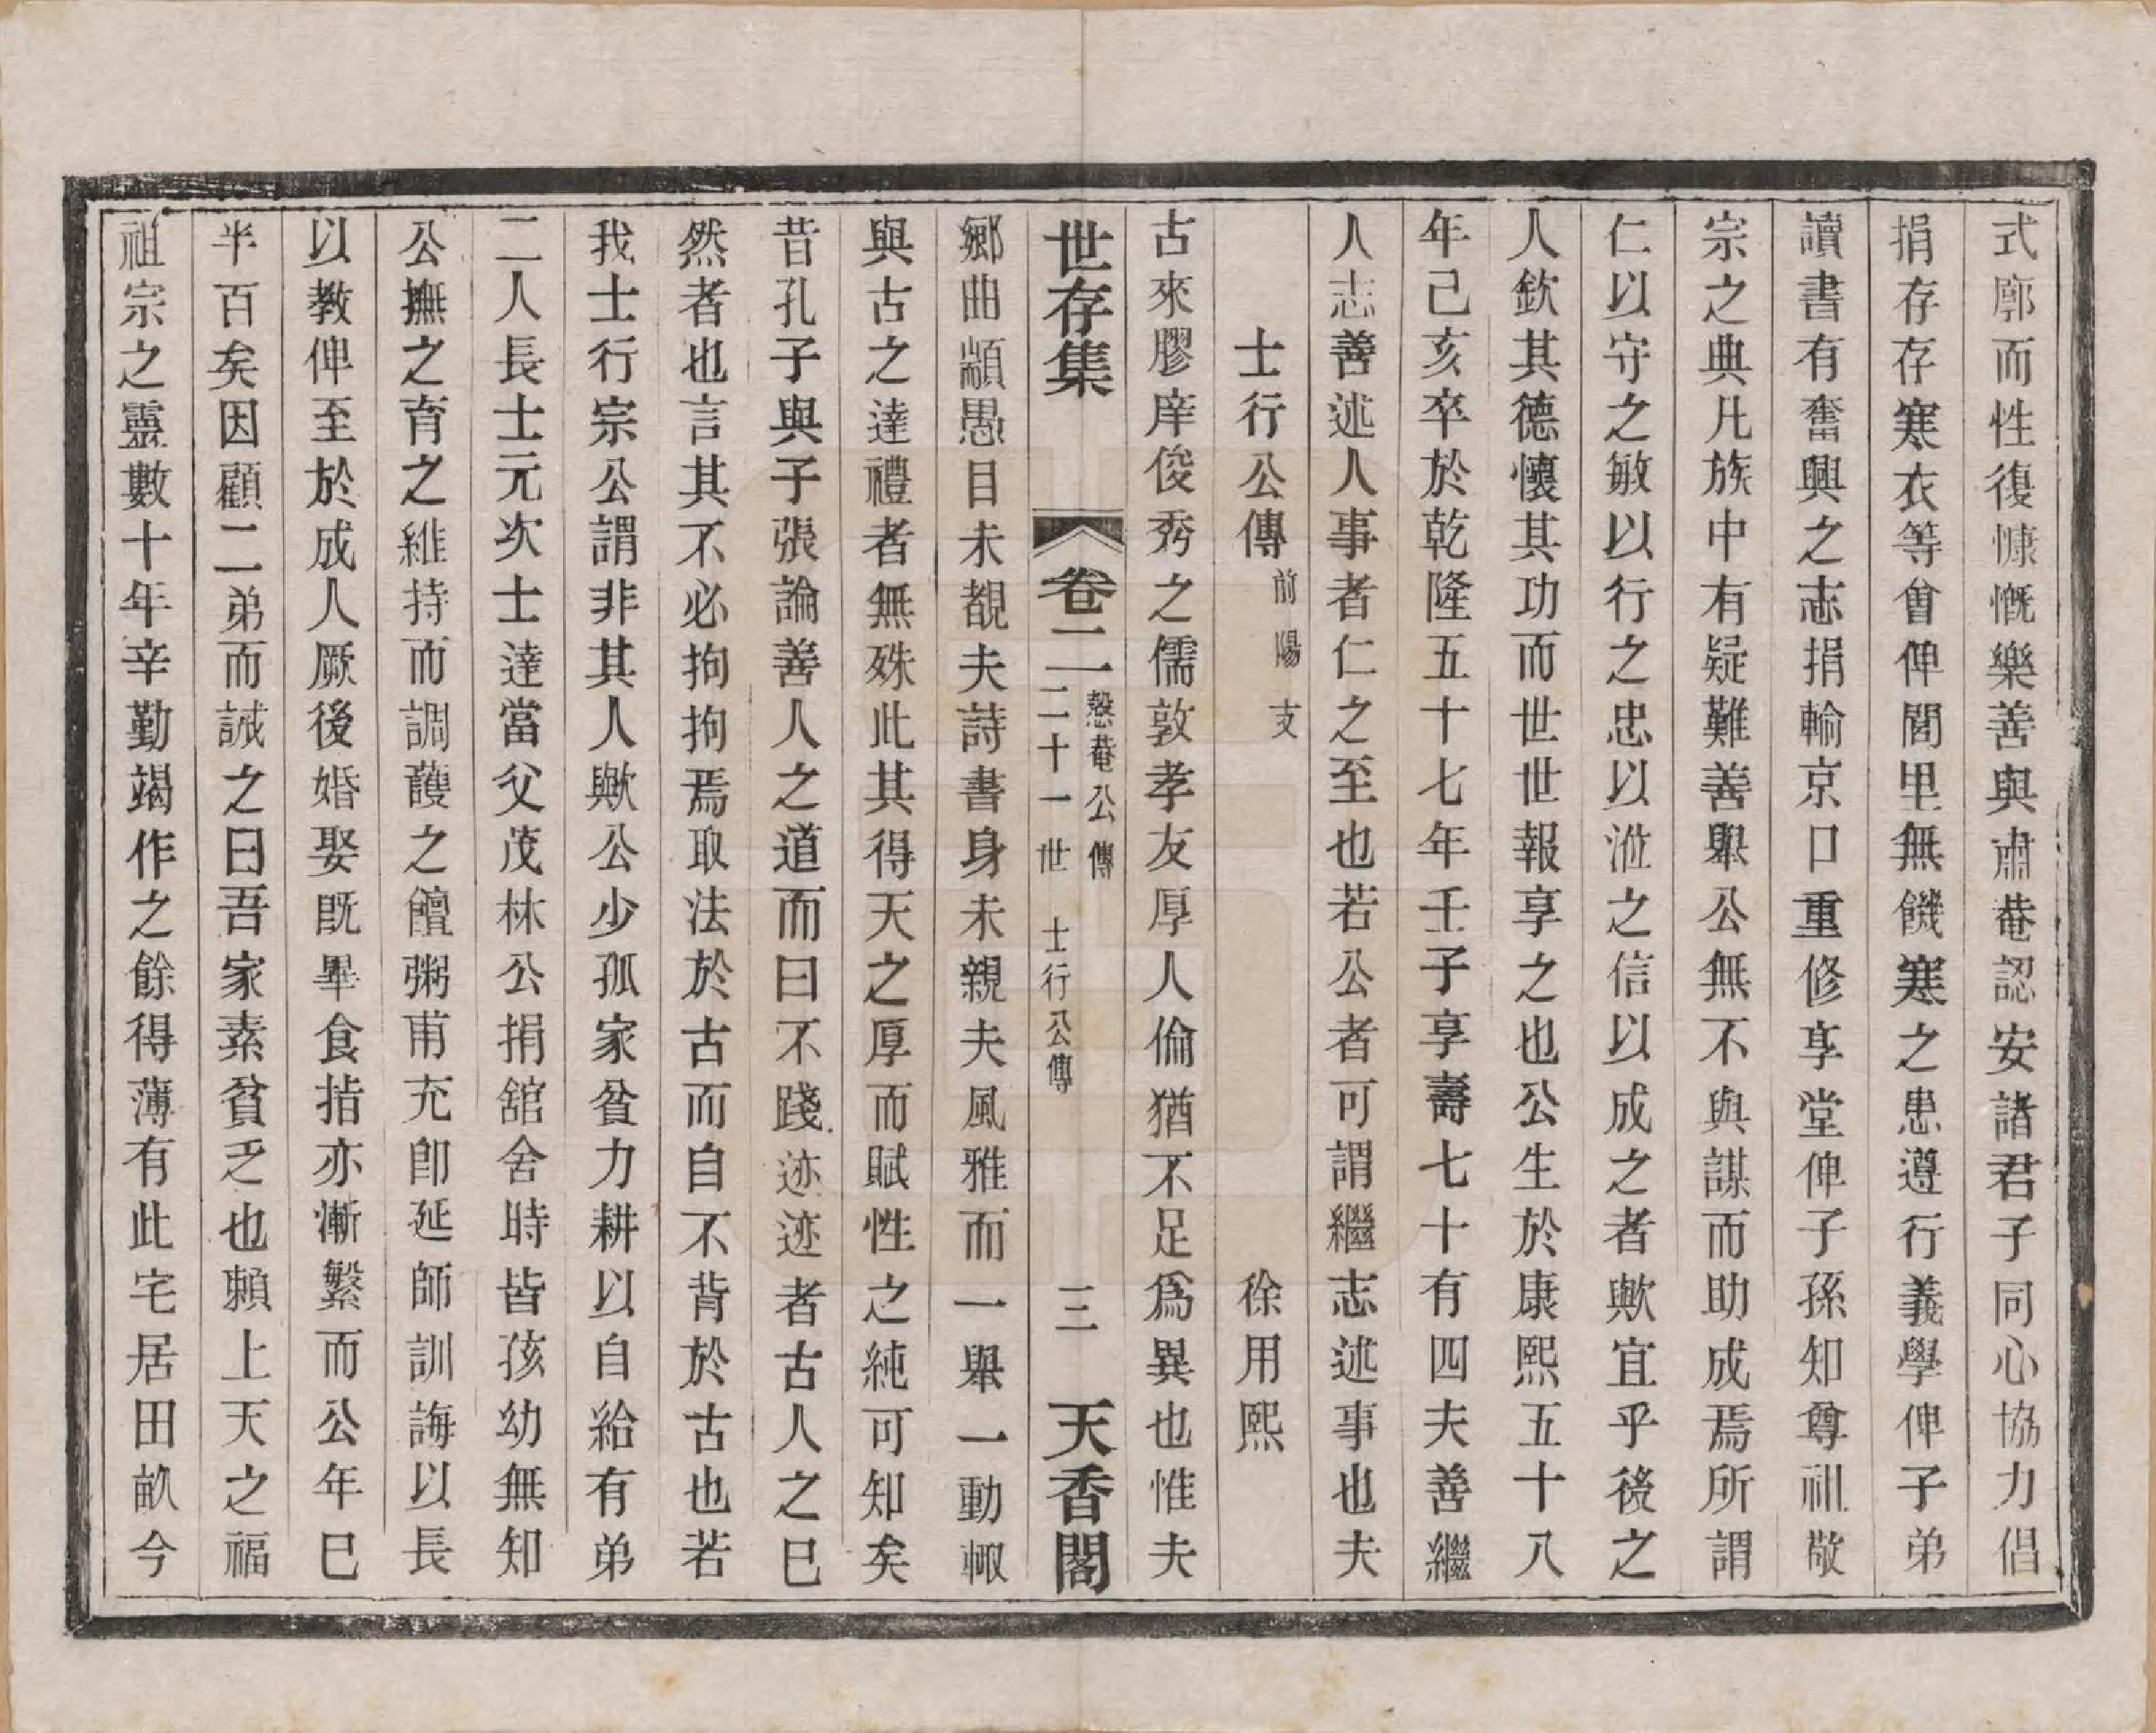 式廓而性復慷慨樂善與肅菴認安諸君子同心協力倡
捐存存寒衣等曾俾閭里無饑寒之患遵行義學俾子弟
讀書有奮興之志捐輸京口重修享堂俾子孫知尊祖敬
宗之典凡族中有疑難善舉公無不與謀而助成焉所謂
仁以守之敏以行之忠以涖之信以成之者歟宜乎後之
人欽其德懷其功而世世報享之也公生於康熙五十八
年己亥卒於乾隆五十七年壬子享壽七十有四夫善繼
人志善述人事者仁之至也若公者可謂繼志述事也夫
士行公傳 前陽支 徐用熙
古來膠庠俊秀之儒敦孝友厚人倫猶不足爲異也惟夫
世存集 卷二 慤菴公傳 二十一世 士行公傳 三 天香閣
鄉曲顓愚目未覩夫詩書身未親夫風雅而一舉一動輙
與古之達禮者無殊此其得天之厚而賦性之純可知矣
昔孔子與子張論善人之道而曰不踐迹迹者古人之巳
然者也言其不必拘拘焉取法於古而自不背於古也若
我士行宗公謂非其人歟公少孤家貧力耕以自給有弟
二人長士元次士達當父茂林公捐舘舍時皆孩幼無知
公撫之育之維持而調護之饘粥甫充卽延師訓誨以長
以教俾至於成人厥後婚娶既畢食指亦漸繁而公年巳
半百矣因顧二弟而誡之曰吾家素貧乏也賴上天之福
祖宗之靈數十年辛勤竭作之餘得薄有此宅居田畝今